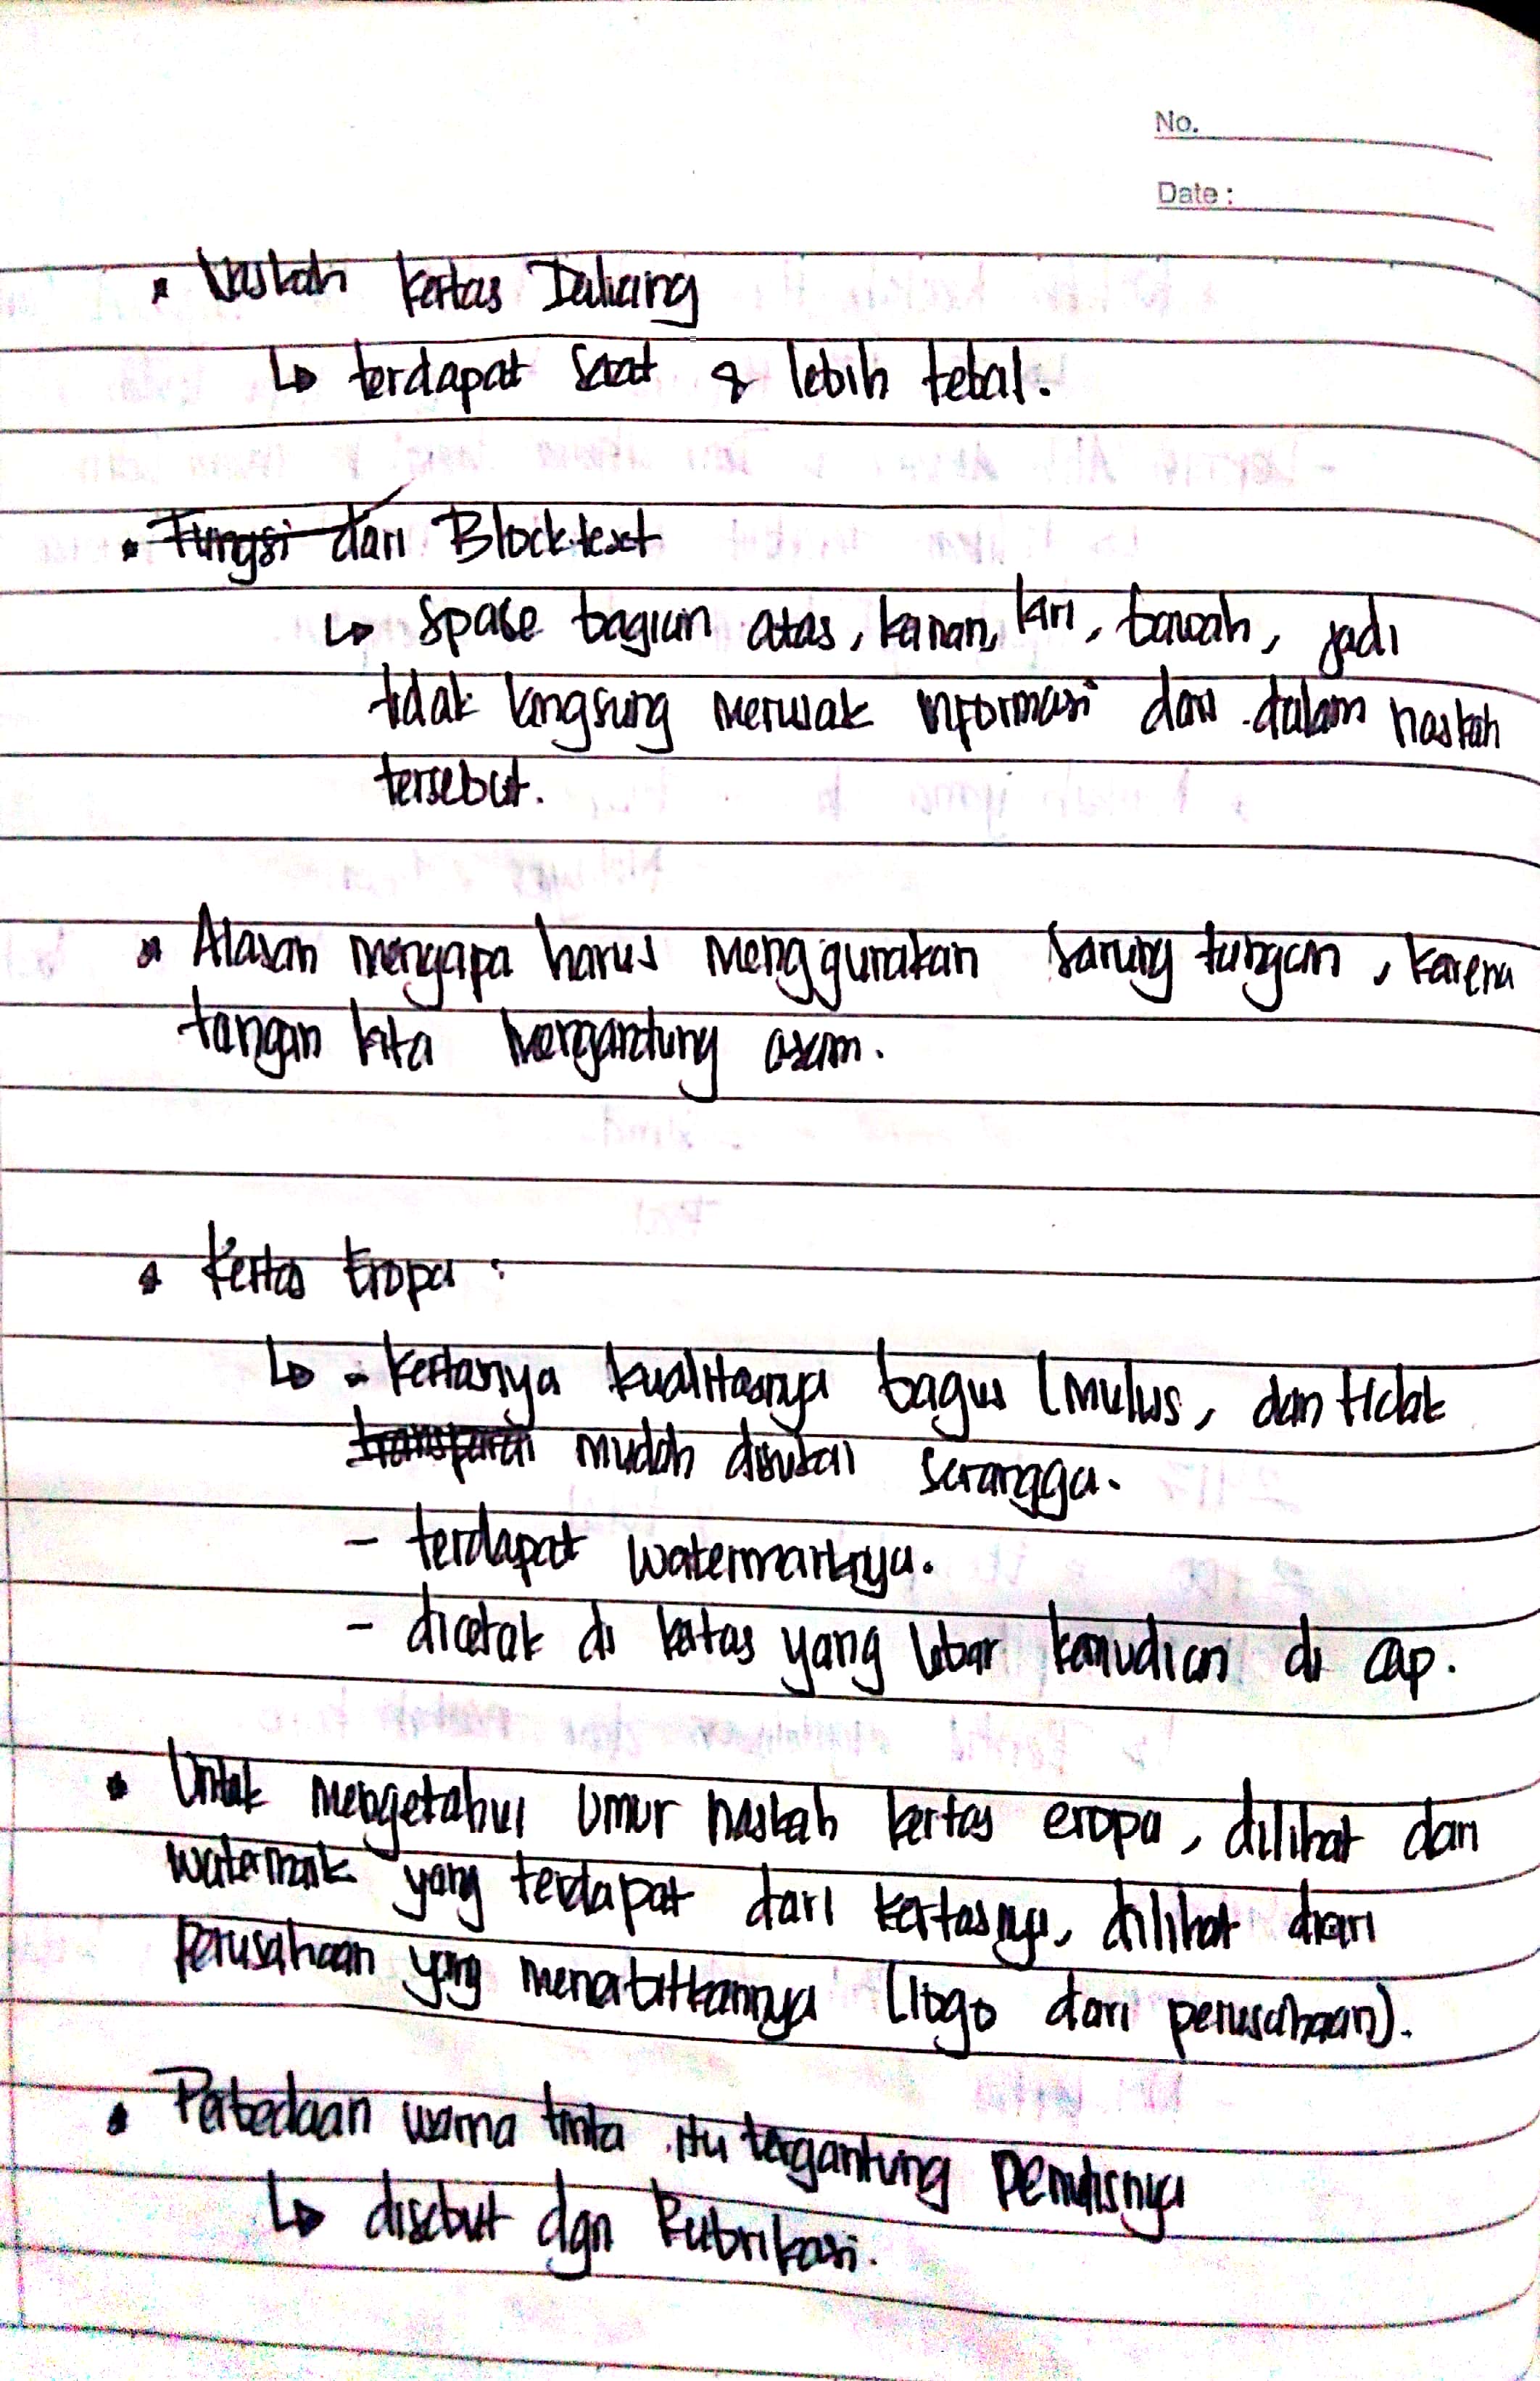 No.
Date :
Naskah kertas Daluang
↳ terdapat serat & lebih tebal.
Fungsi dari Blocktext
↳ space bagian atas, kanan, kiri, bawah, jadi
tidak langsung merusak informasi dari dalam naskah
tersebut.
Alasan mengapa harus menggunakan sarung tangan, karena
tangan kita mengandung asam.
Kertas Eropa :
↳ - kertasnya kualitasnya bagus (mulus, dan tidak
transparan mudah disukai serangga.
- terdapat watermarknya.
- dicetak di kertas yang lebar kemudian di cap.
Untuk mengetahui umur naskah kertas eropa, dilihat dari
watermark yang terdapat dari kertasnya, dilihat dari
perusahaan yang menerbitkannya (logo dari perusahaan).
Perbedaan warna tinta itu tergantung penulisnya
↳ disebut dgn Rubrikasi.